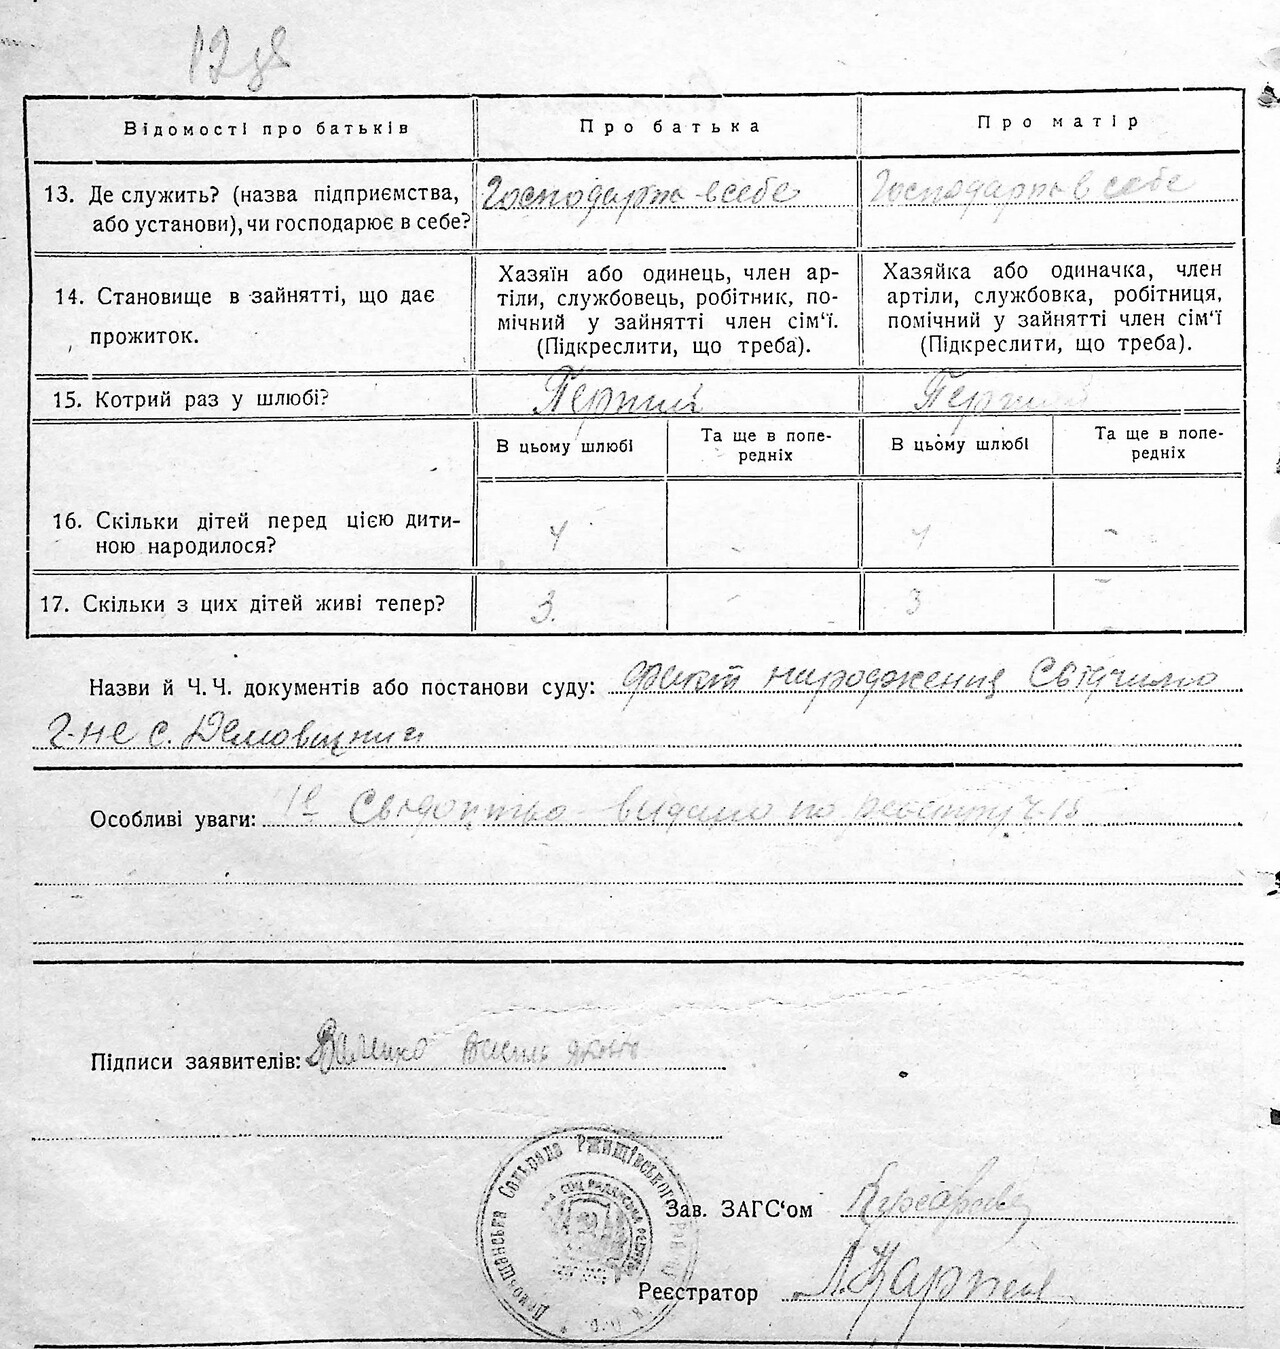 12 зв
Відомості про батьків
Про батька
Про матір
13. Де служить? (назва підприємства, або установи), чи господарює в себе?
Господарює в себе
Господарює в себе
14. Становище в зайнятті, що дає прожиток.
Хазяїн або одинець, член ар-
тіли, службовець, робітник, по-
мічний у зайнятті член сім‘ї.
(Підкреслити, що треба).
Хазяйка або одиначка, член
артіли, службовка, робітниця,
помічний у зайнятті член сім‘ї
(Підкреслити, що треба).
15. Котрий раз у шлюбі?
Перший
Перший
В цьому шлюбі
Та ще в попе-
редніх
В цьому шлюбі
Та ще в попе-
редніх
16. Скільки дітей перед цією дити-
ною народилося?
4
-
4
-
17. Скільки з цих дітей живі тепер?
3.
-
3
-
Назви й Ч. Ч. документів або постанови суду: факт народження
с.
Особливі уваги: Свідоцтво видано по реєстру ч. 15
Підписи заявителів: Василь
Сольрада Ржищівського
Зав. ЗАГС‘ом
Реєстратор